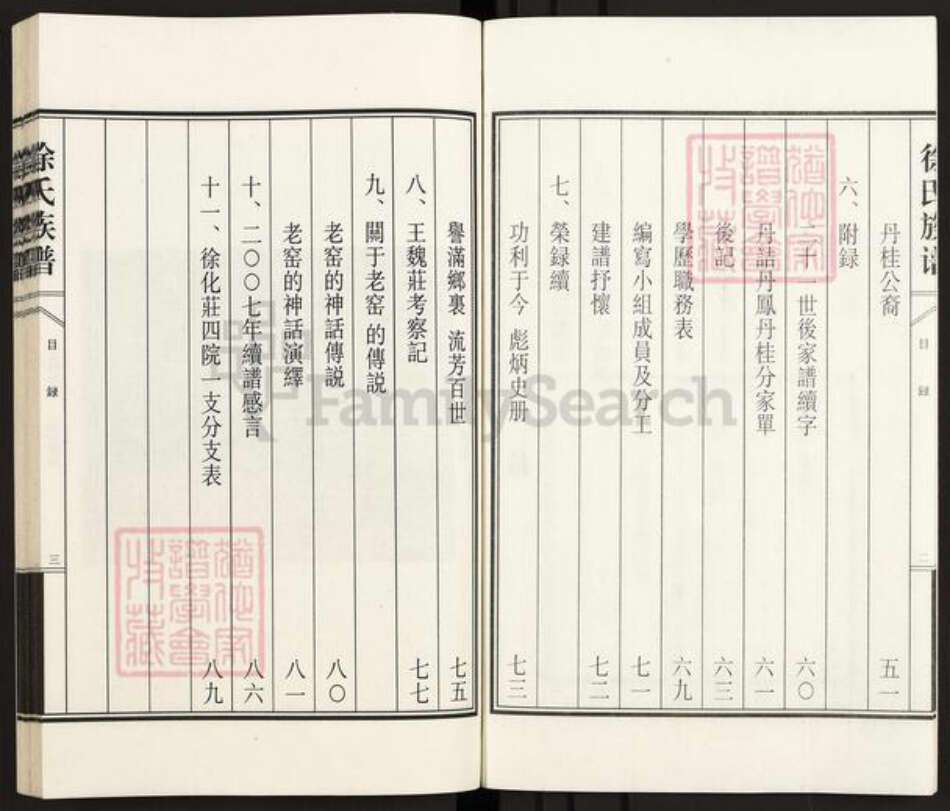 徐氏族譜
目録
二
丹桂公裔 五一
六、附録
二十一世後家譜續字 六〇
丹詰丹鳳丹桂分家單 六一
後記 六三
學歷職務表 六九
編寫小組成員及分工 七一
建譜抒懷 七二
七、榮録續
功利于今 彪炳史册 七三
譽滿鄉裏 流芳百世 七五
八、王魏莊考察記 七七
九、關于老窑的傳説
老窑的神話傳説 八〇
老窑的神話演繹 八一
十、二〇〇七年續譜感言 八六
十一、徐化莊四院一支分支表 八九
徐氏族譜
目録
三
FamilySearch
猶他家譜學會收藏
猶他家譜學會收藏